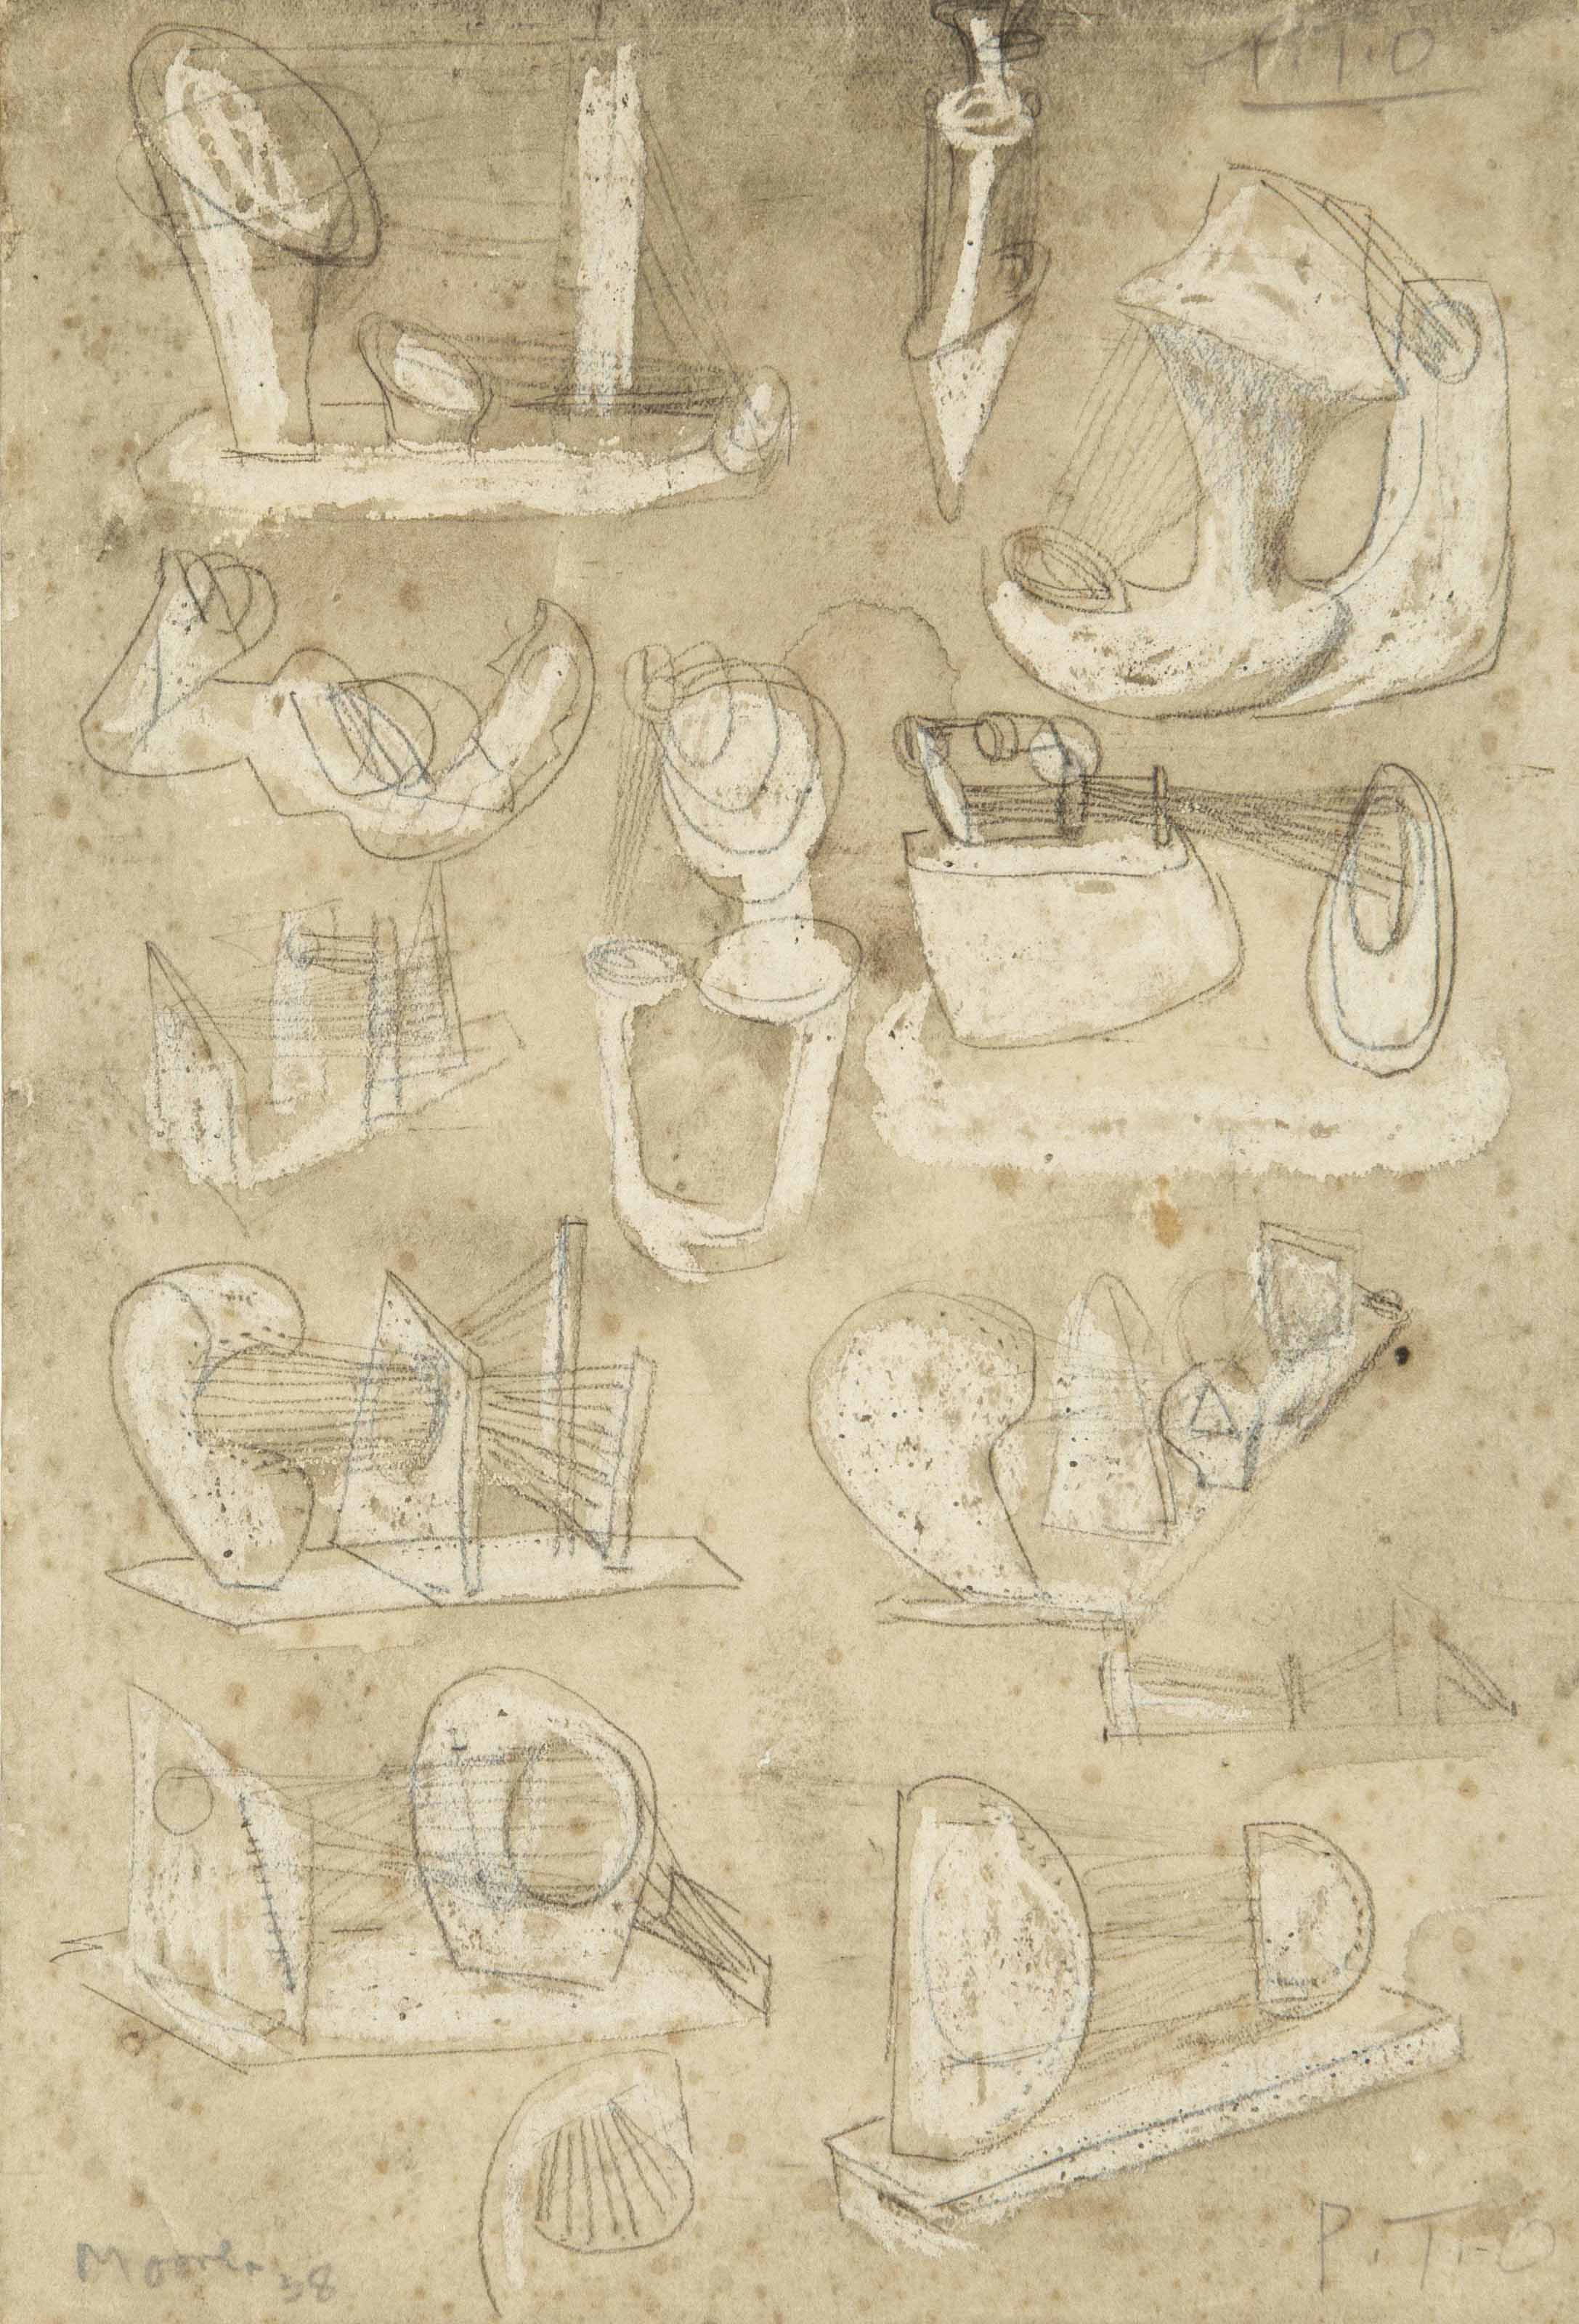 P.T.O
Moore. 38
P.T.O